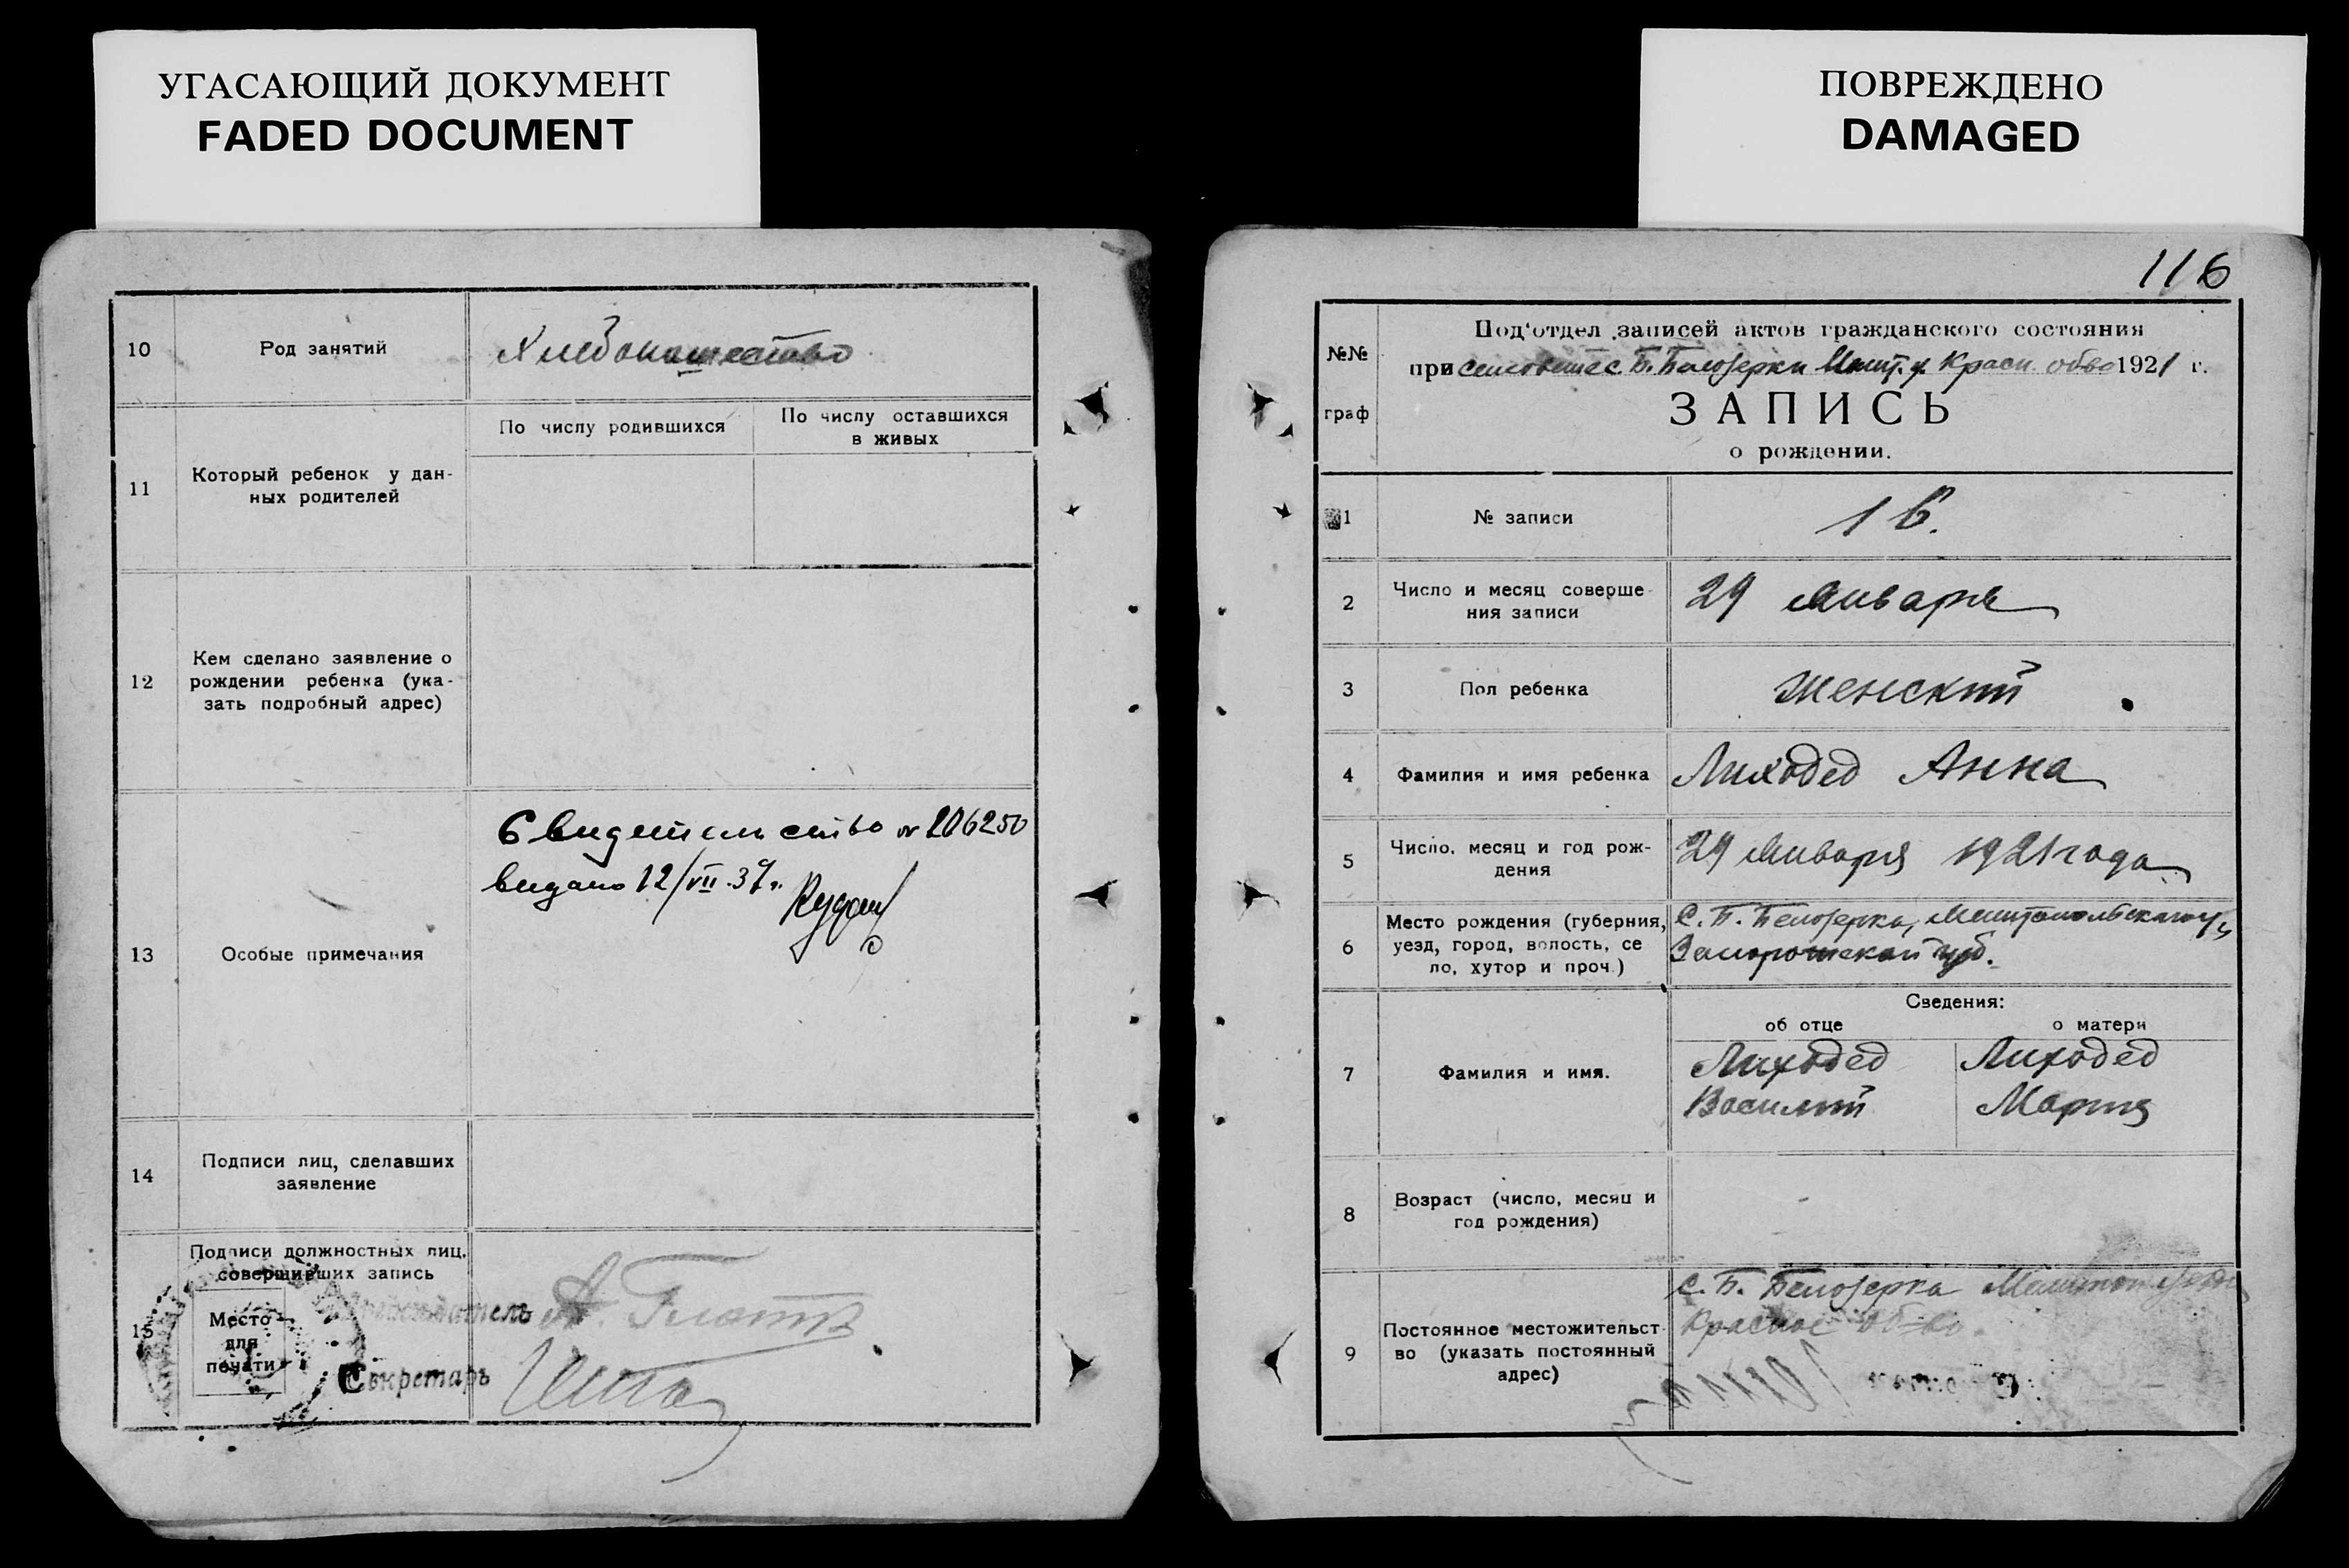 УГАСАЮЩИЙ ДОКУМЕНТ
FADED DOCUMENT
ПОВРЕЖДЕНО
DAMAGED
10
Род занятий
Хлебопашество
11
Который ребенок у дан-
ных родителей
По числу родившихся
По числу оставшихся
в живых
12
Кем сделано заявление о
рождении ребенка (ука-
зать подробный адрес)
13
Особые примечания
Свидетельство № 206250
видано 12/VII.37г.
14
Подписи лиц, сделавших
заявление
15
Подписи должностных лиц,
совершивших запись
Место
для
печати
Председатель А.
Секретарь
116
№№
граф
Под'отдел записей актов гражданского состояния
при сельсовете с. Б. Белозерки Мелит. у. Красн. обво 1921 г.
ЗАПИСЬ
о рождении.
1
№ записи
16.
2
Число и месяц соверше-
ния записи
29 Января
3
Пол ребенка
женский
4
Фамилия и имя ребенка
Лиходед Анна
5
Число, месяц и год рож-
дения
29 Января 1921 года
6
Место рождения (губерния,
уезд, город, волость, се
ло, хутор и проч.)
С. Б. Белозерка, Мелитопольскаго у,
Запорожской губ.
7
Фамилия и имя.
Сведения:
об отце
о матери
Лиходед
Василий
Лиходед
Мария
8
Возраст (число, месяц и
год рождения)
9
Постоянное местожительст-
во (указать постоянный
адрес)
с. Б. Белозерка Мелитоп. уезда
Красное об-во.